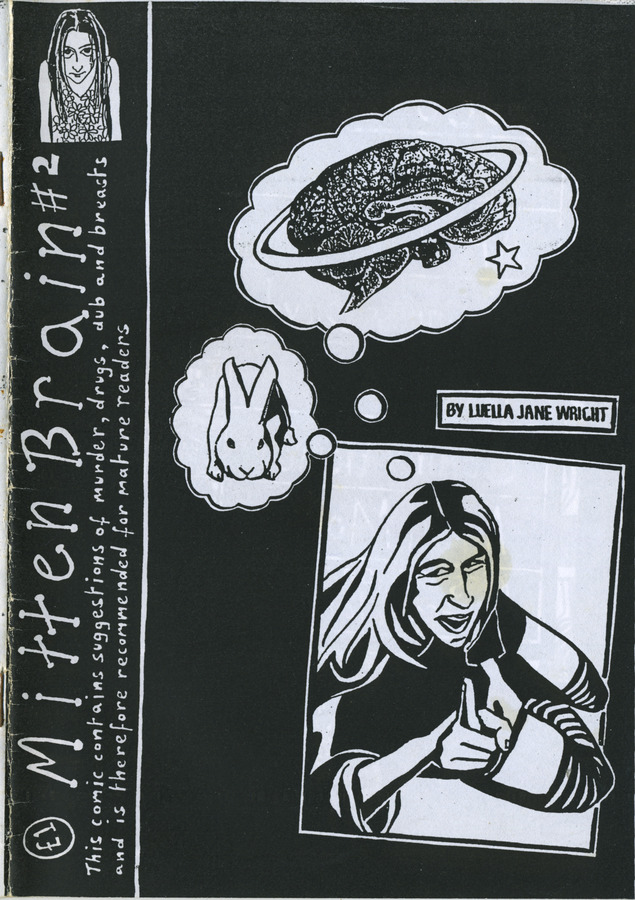 £1
Mitten Brain #2
This comic contains suggestions of murder, drugs, dub and breasts
and is therefore recommended for mature readers
BY LUELLA JANE WRIGHT